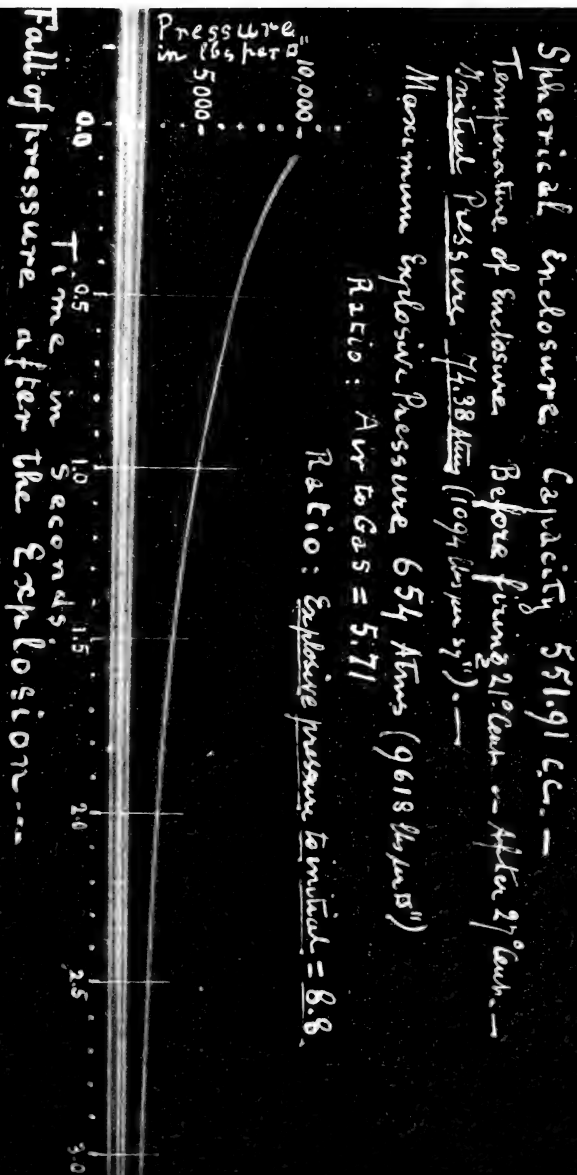 Spherical Enclosure Capacity 551.91 c.c. —
Temperature of Enclosure Before firing 21° Cent. — After 27° Cent. —
Initial Pressure 74.38 Atms (1094 lbs per sq"). —
Maximum Explosive Pressure 654 Atms (9618 lbs per □")
Ratio: Air to Gas = 5.71
Ratio: Explosive pressure to initial = 8.8.
Pressure
in lbs per □"
10,000
5,000
0.0 0.5 1.0 1.5 2.0 2.5 3.0
Time in Seconds
Fall of pressure after the Explosion...